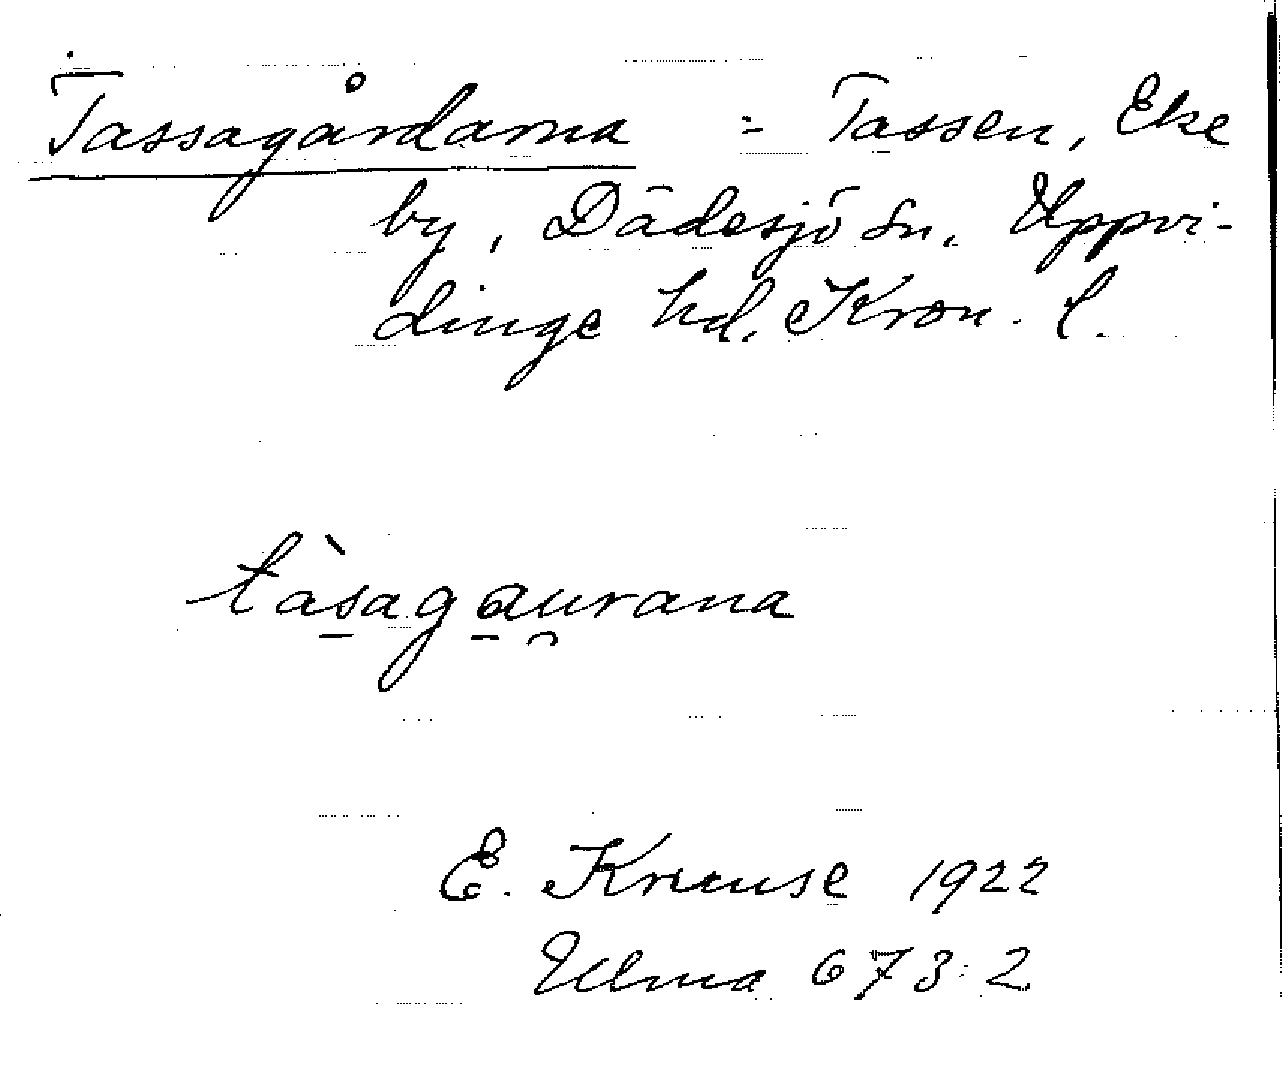 Tassagårdarna = Tassen, Eke
by, Dädesjö sn, Uppvi-
dinge hd. Kron. l.
tàs̠aga̠u̯rana
E. Krause 1922
Ulma 673:2